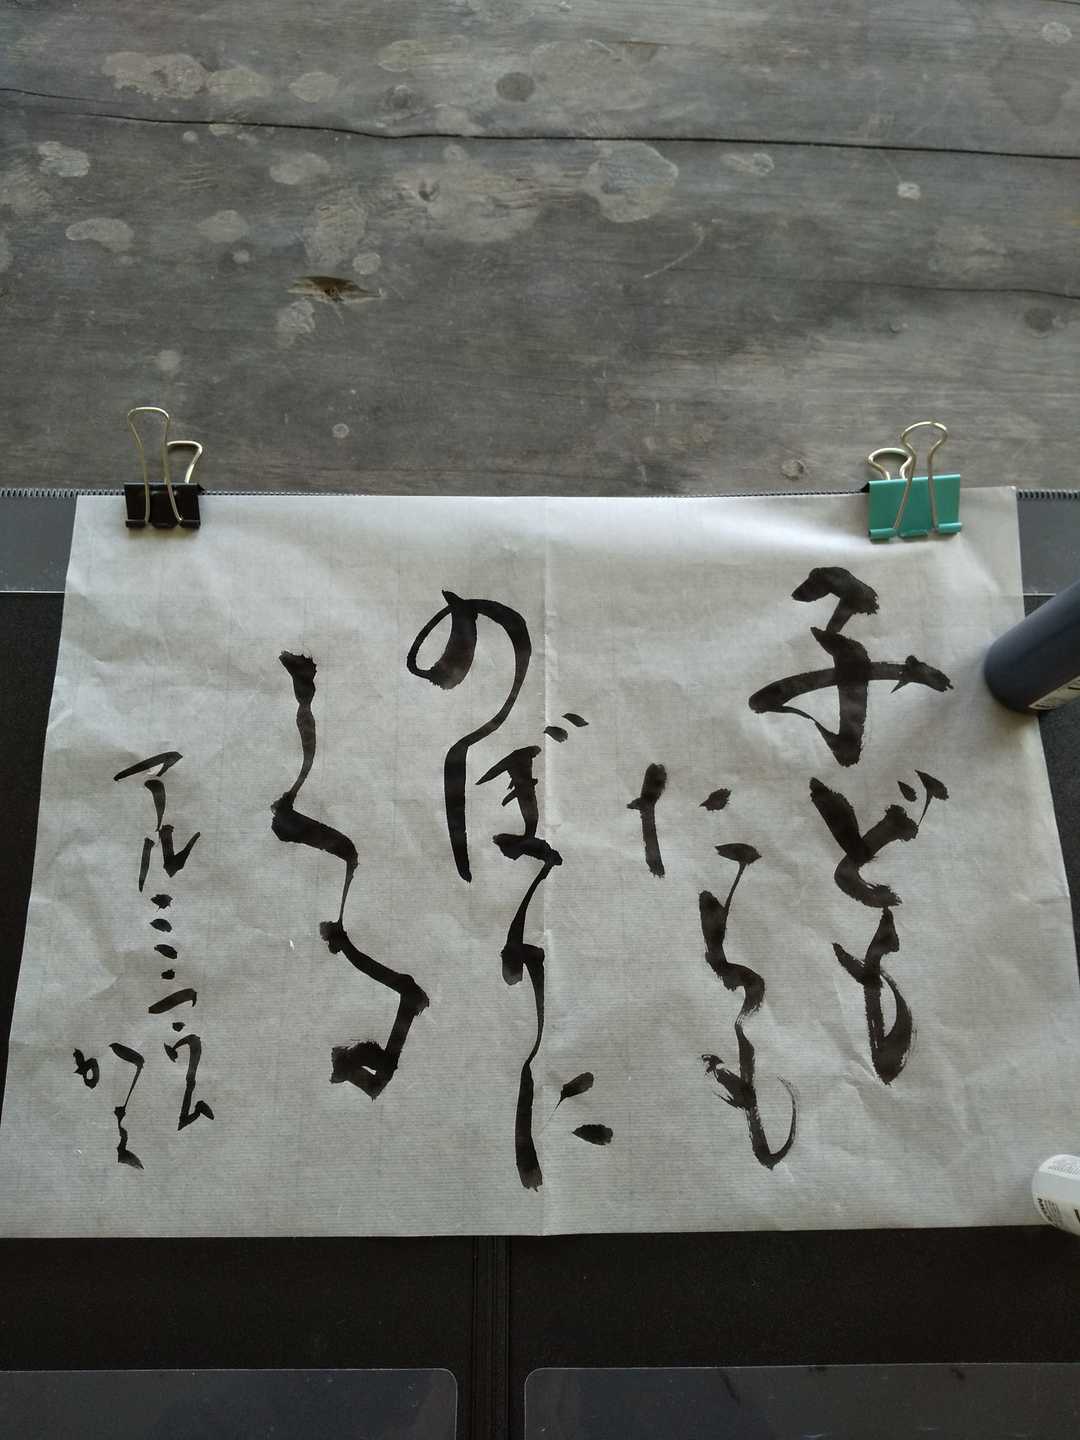 子ども
たちも
のぼりに
くる
アルミニウム